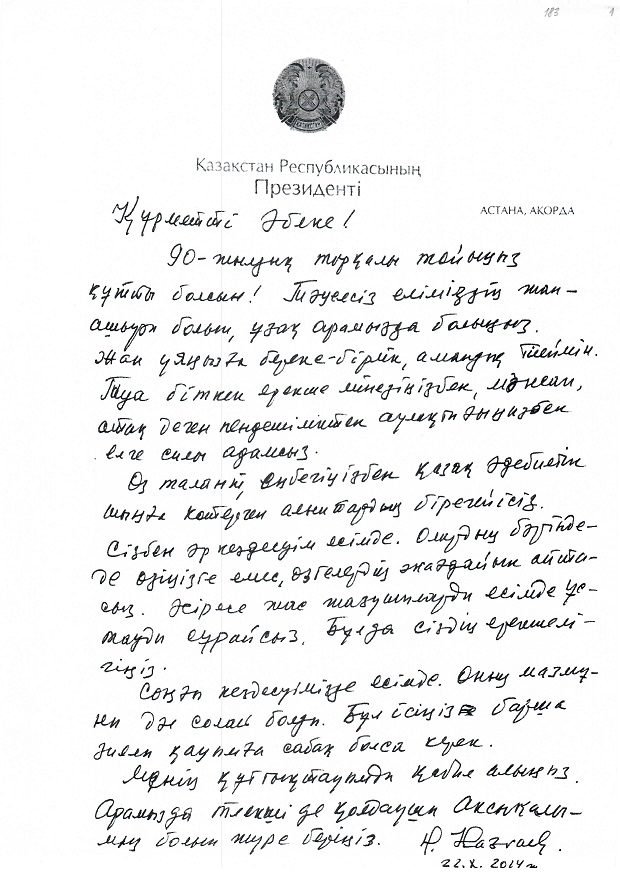 183 1
Қазақстан Республикасының
Президенті
АСТАНА, АҚОРДА
Құрметті Әбеке!
90-жылдық торқалы тойыңыз
құтты болсын! Тәуелсіз еліміздің жан-
ашыры болып, ұзақ арамызда болыңыз.
Жан ұяңызға береке-бірлік, амандық тілеймін.
Туа біткен ерекше мінезіңізбен, мансап,
атақ деген пендешіліктен аулақтығыңызбен
елге сыйлы адамсыз.
Өз талантты, еңбегіңізбен қазақ әдебиетін
шыңға көтерген алыптардың бірегейісіз.
Сізбен әр кездесуім есімде. Олардың бәрінде-
де өзіңізге емес, өзгелердің жағдайын айта-
сыз. Әсіресе жас жазушыларды есімде ұс-
тауды сұрайсыз. Бұл да сіздің ерекшелі-
гіңіз.
Соңғы кездесуімізде есімде. Оның мазмұ-
ны дәл солай болды. Бұл ісіңіз барша
зиялы қауымға сабақ болса керек.
Менің құттықтауымды қабыл алыңыз.
Арамызда тілекші де қолдаушы Ақсақалы-
мыз болып жүре беріңіз.
22.X.2014ж